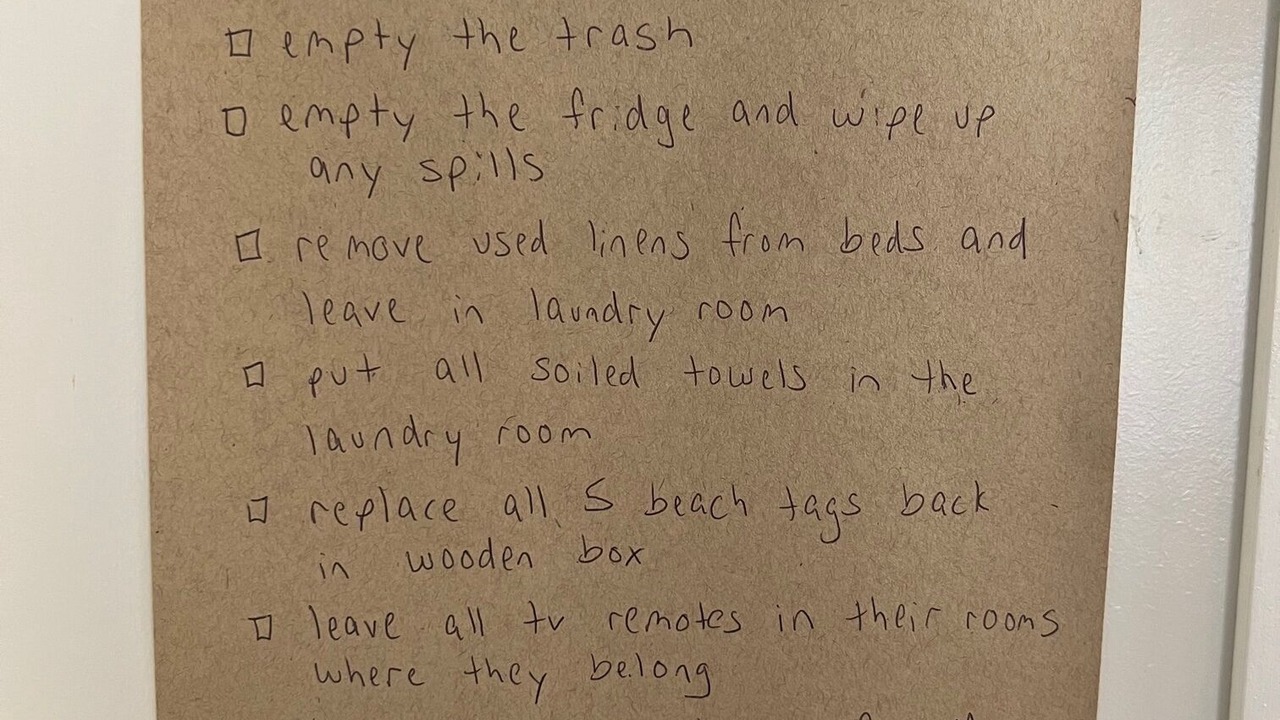 empty the trash
empty the fridge and wipe up
any spills
remove used linens from beds and
leave in laundry room
put all soiled towels in the
laundry room
replace all 5 beach tags back
in wooden box
leave all tv remotes in their rooms
where they belong